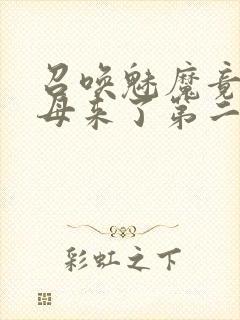 召唤魅魔竟
母来了第二
彩虹之下